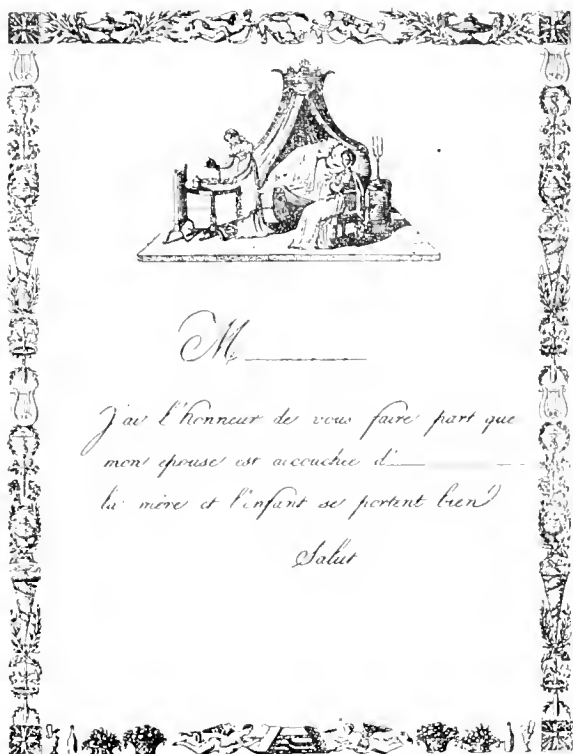 M
J'ai l'honneur de vous faire part que
mon epouse est accouchée d'
la mère et l'enfant se portent bien
Salut